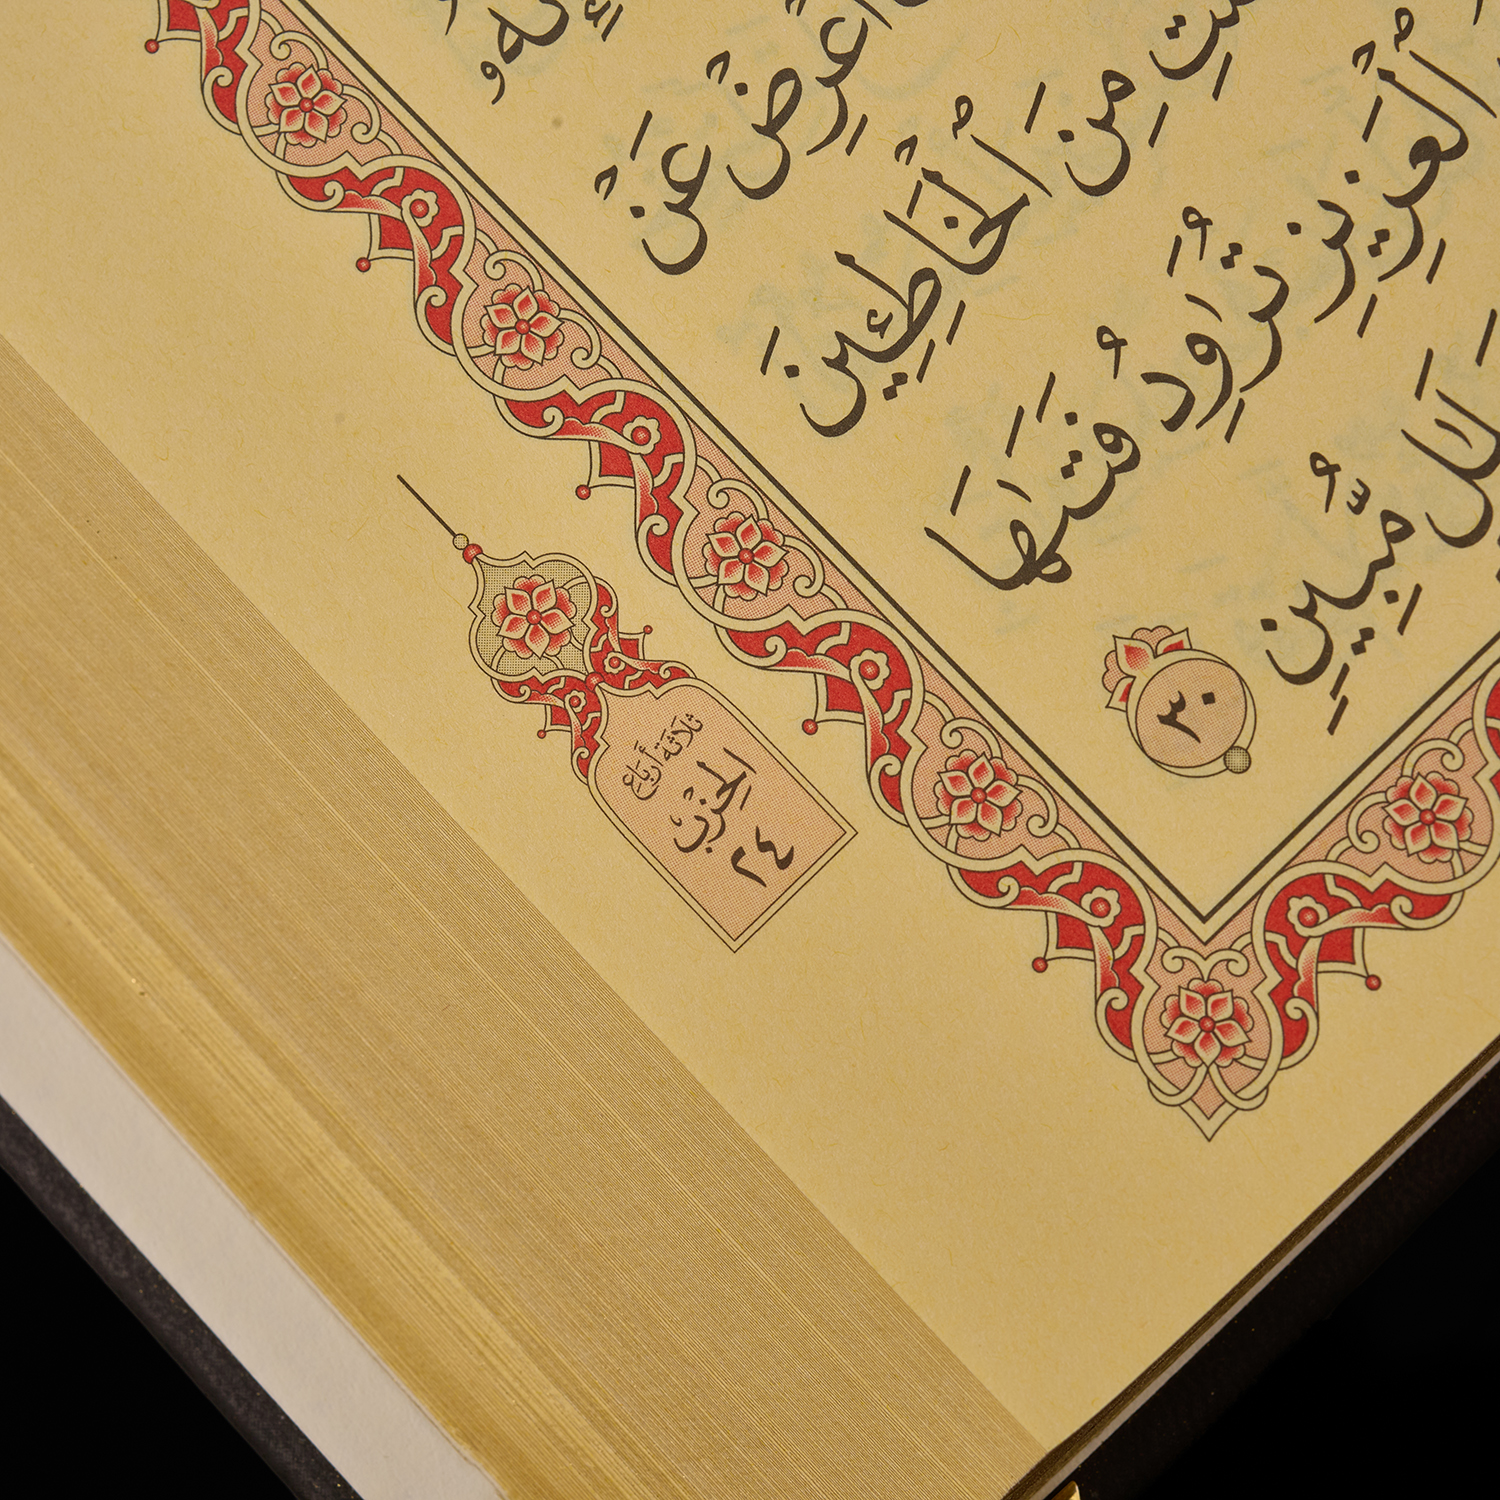 أَعْرِضْ عَنْ
مِنَ ٱلْخَاطِـِٔينَ
ٱلْعَزِيزِ تُرَٰوِدُ فَتَىٰهَا
مُّبِينٍ ٣٠
ثَلَاثَةُ أَرْبَاعِ
الحِزْبِ
٢٤